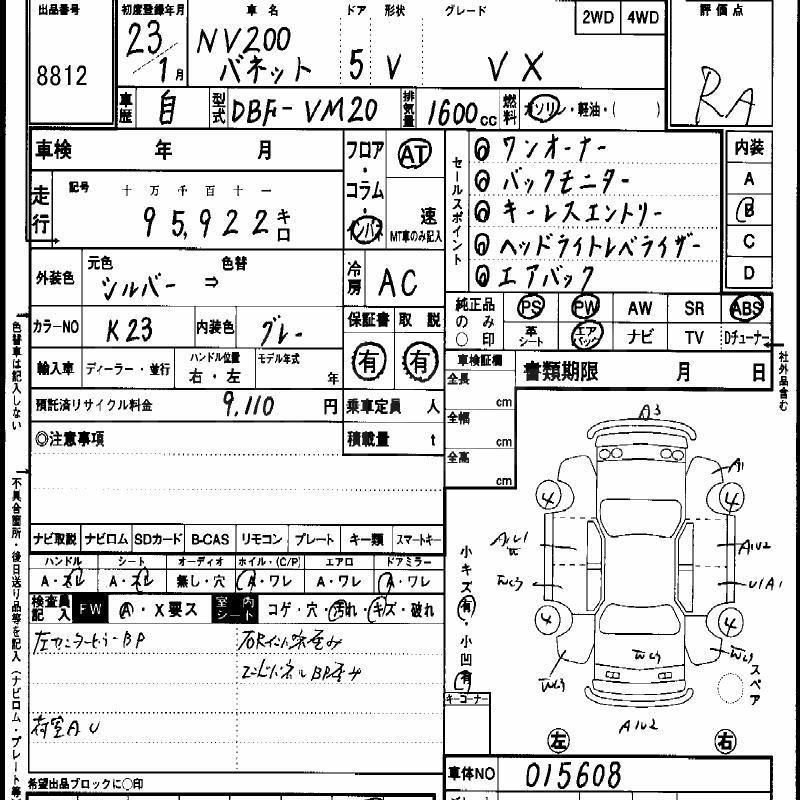 出品番号 初度登録年月 車名 ドア 形状 グレード 2WD 4WD 評価点
8812 23/1月 NV200 バネット 5 V VX RA
車歴 自 型式 DBF-VM20 排気量 1600cc 燃料 ガソリン・軽油・( )
車検 年 月 フロア・コラム・インパネ AT 速 MT車のみ記入
走行 記号 十万千百十一
95,922キロ
外装色 元色 シルバー ⇒ 色替 冷房 AC
カラーNO K23 内装色 グレー 保証書 有 取説 有
輸入車 ディーラー・並行 ハンドル位置 右・左 モデル年式 年
預託済リサイクル料金 9,110円 乗車定員 人
◎注意事項 積載量 t
セールスポイント
◎ワンオーナー
◎バックモニター
◎キーレスエントリー
◎ヘッドライトレベライザー
◎エアバック
内装 A B C D
純正品のみ○印 PS PW AW SR ABS
革シート エアバッグ ナビ TV Dチューナー
車検証欄 書類期限 月 日
全長 cm
全幅 cm
全高 cm
ナビ取説 ナビロム SDカード B-CAS リモコン プレート キー類 スマートキー
ハンドル シート オーディオ ホイル・(C/P) エアロ ドアミラー
A・スレ A・スレ 無し・穴 A・ワレ A・ワレ A・ワレ
検査員記入 FW A・X要ス 室内シート コゲ・穴・汚れ・キズ・破れ
左センターピラーBP
エンドパネルBP歪み
荷室AU
希望出品ブロックに○印
色替車は記入しない
不具合箇所・後日送り品等を記入(ナビロム・プレート等
社外品含む
A3
A1
4 4
A1U2
U1A1
4 4
スペア
A1U2
小キズ有・小凹有
キーコーナー
左 右
車体NO 015608